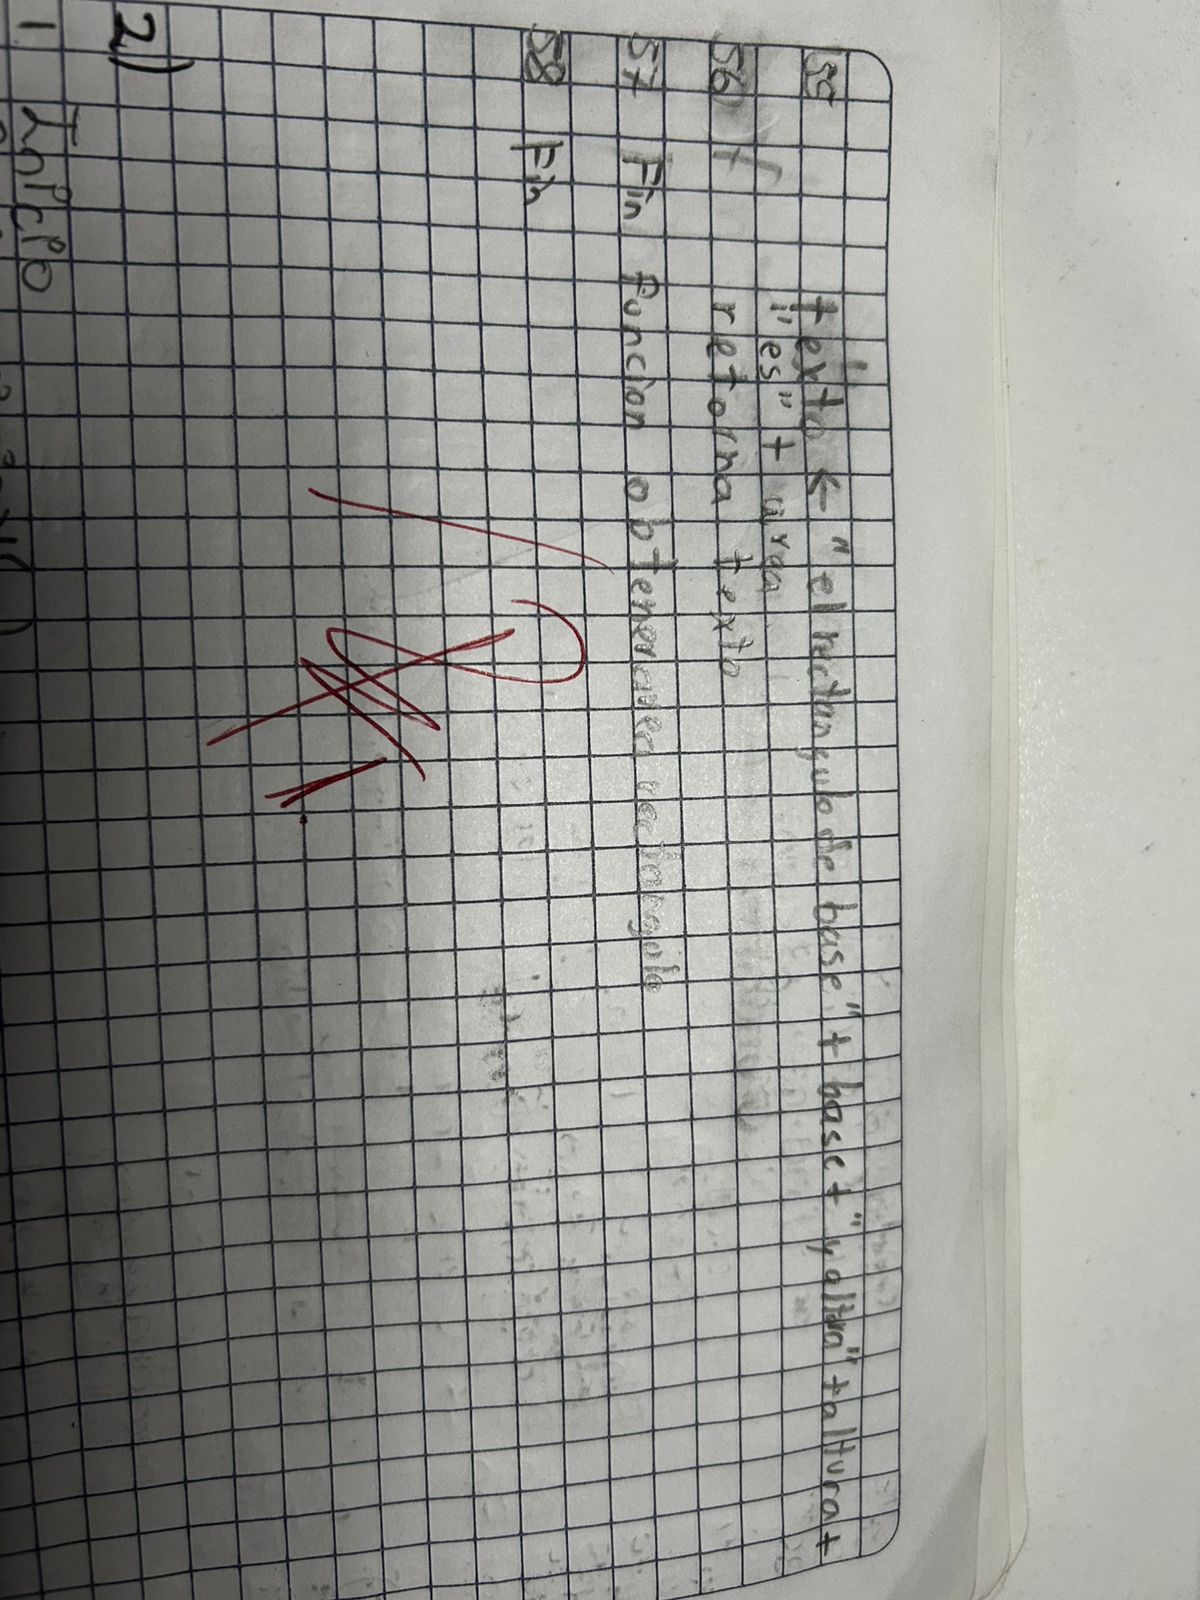 55 texto ← "el rectangulo de base" + base + "y altura" + alltura +
"es" + area
56 retorna texto
57 Fin funcion obtenerarea rectangulo
58 Fin
2)
1 Inicio